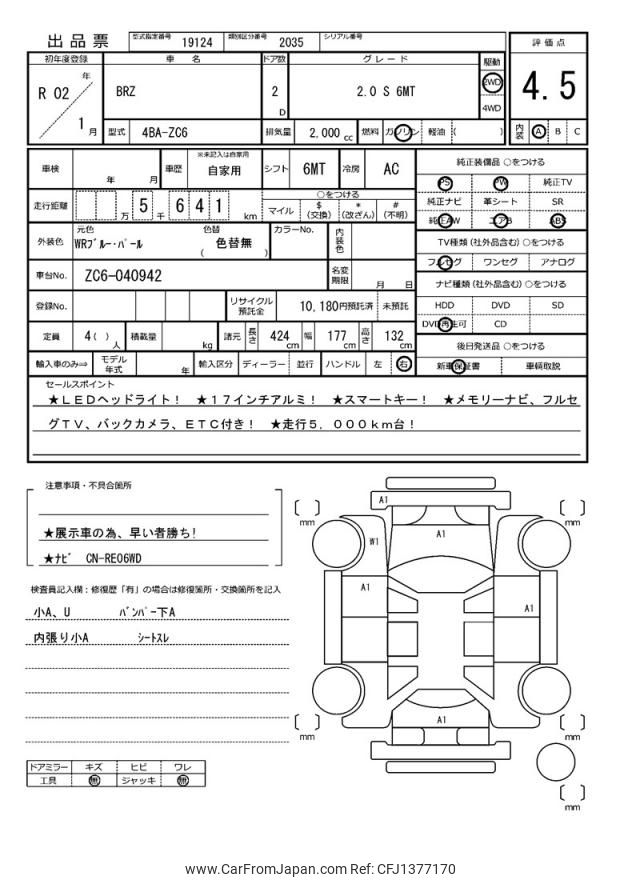 出品票 型式指定番号 19124 類別区分番号 2035 シリアル番号
評価点
4.5
内装 A B C
初年度登録 車名 ドア数 グレード 駆動
R 02 年 1 月
BRZ 2 D 2.0 S 6MT 2WD 4WD
型式 4BA-ZC6 排気量 2,000 cc 燃料 ガソリン 軽油 ( )
車検 年 月 車歴 ※未記入は自家用 自家用 シフト 6MT 冷房 AC
走行距離 万 5 千 6 4 1 km
○をつける
マイル $ (交換) * (改ざん) # (不明)
外装色 元色 WRブルー・パール 色替 ( 色替無 ) カラーNo. 内装色
車台No. ZC6-040942 名変期限 月 日
登録No. リサイクル預託金 10,180円預託済 未預託
定員 4( )人 積載量 kg 諸元 長さ 424 cm 幅 177 cm 高さ 132 cm
輸入車のみ⇒ モデル年式 年 輸入区分 ディーラー 並行 ハンドル 左 右
純正装備品 ○をつける
PS PW 純正TV
純正ナビ 革シート SR
純正AW エアB ABS
TV種類(社外品含む)○をつける
フルセグ ワンセグ アナログ
ナビ種類(社外品含む)○をつける
HDD DVD SD
DVD再生可 CD
後日発送品 ○をつける
新車保証書 車輌取説
セールスポイント
★LEDヘッドライト! ★17インチアルミ! ★スマートキー! ★メモリーナビ、フルセ
グTV、バックカメラ、ETC付き! ★走行5,000km台!
注意事項・不具合箇所
★展示車の為、早い者勝ち!
★ナビ CN-RE06WD
検査員記入欄:修復歴「有」の場合は修復箇所・交換箇所を記入
小A、U バンパー下A
内張り小A シートスレ
ドアミラー キズ ヒビ ワレ
工具 無 ジャッキ 無
A1
W1
A1
A1
A1
A1
[ ] mm
[ ] mm
[ ] mm
[ ] mm
[ ] mm
www.CarFromJapan.com Ref: CFJ1377170